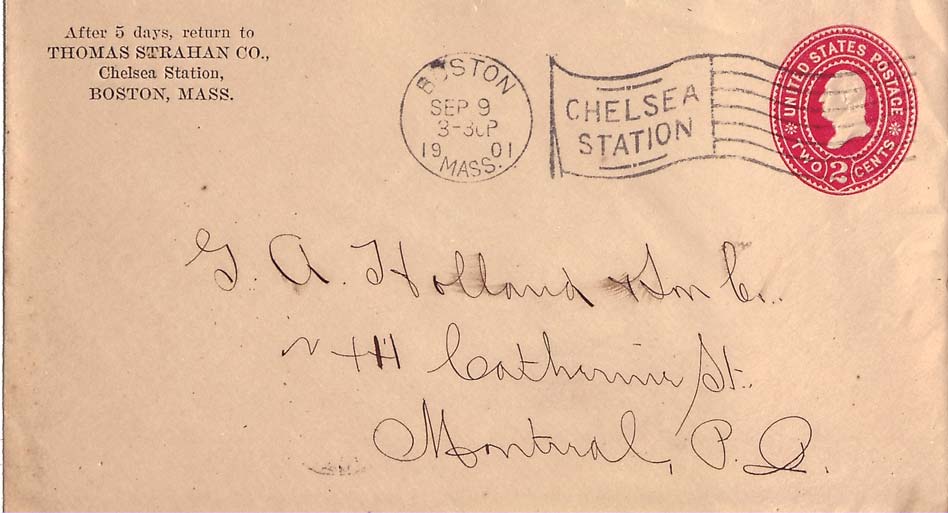 After 5 days, return to
THOMAS STRAHAN CO.,
Chelsea Station,
BOSTON, MASS.
BOSTON
SEP 9
3-30P
19 01
MASS.
CHELSEA
STATION
UNITED STATES POSTAGE
TWO 2 CENTS
G. A. Holland & Son Co.
Catherine St.
Montreal, P. Q.